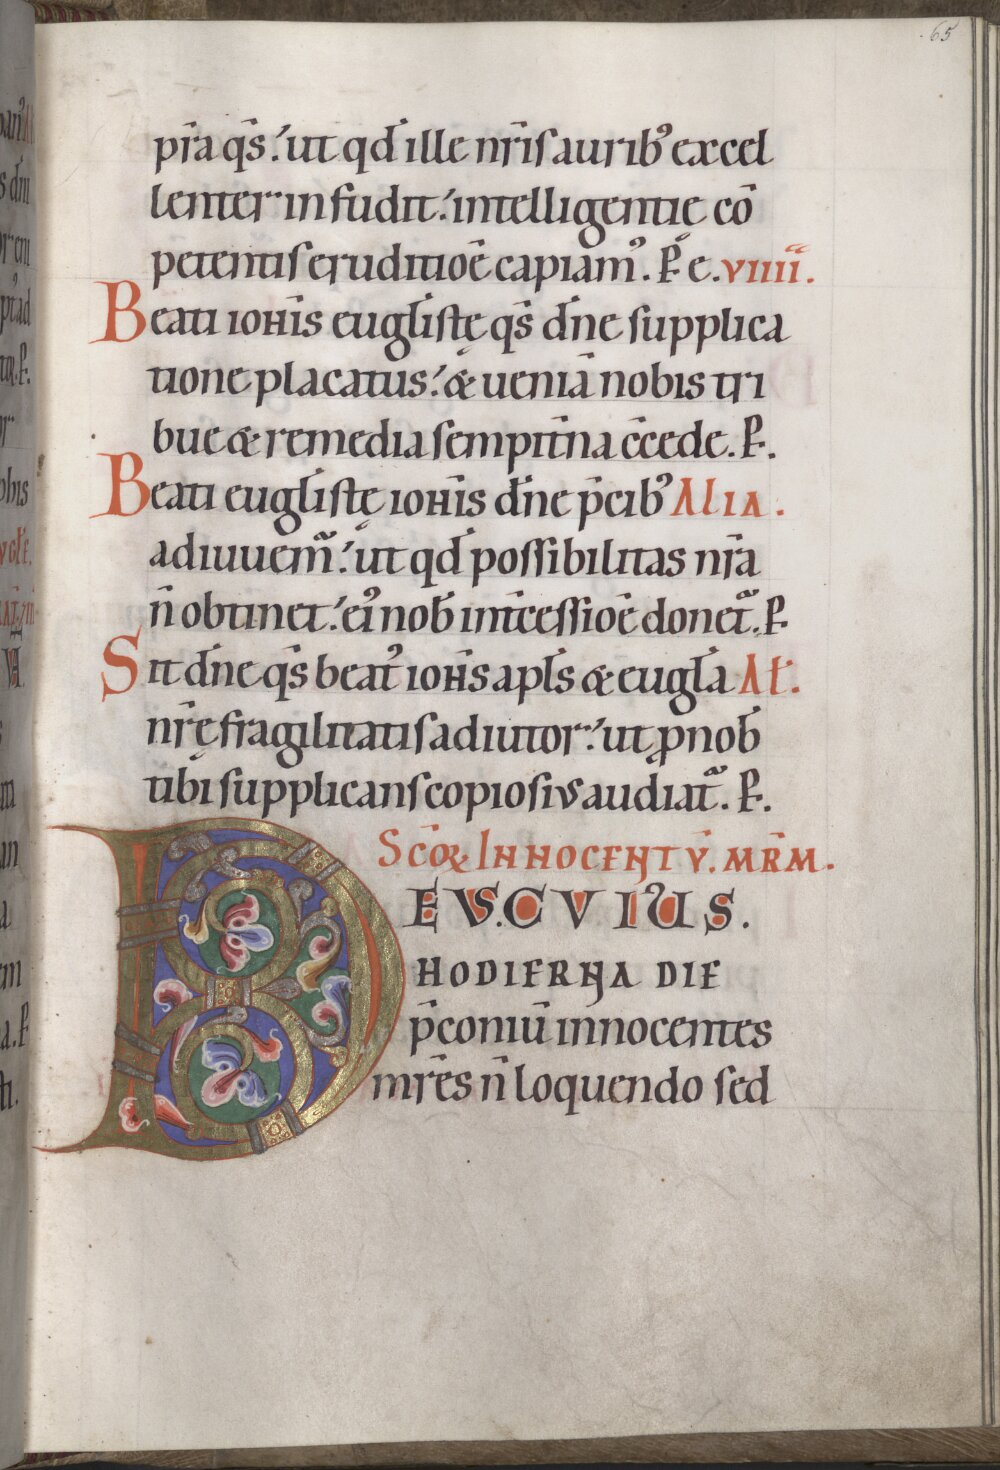 65
p̄ra q̄s. ut qđ ille nr̄is aurib᾿ excel
lenter infudit. intelligentię cō
petentis eruditioē capiam᾿. P̄ e. VIIII.
Beati ioħis eugłistę q̄s dn̄e supplica
tione placatus. & ueniā nobis tri
bue & remedia sempit̄na c̄cede. P̄.
Beati eugłistę ioħis dn̄e p̄cib᾿ ALIA.
adiuuem̄. ut qđ possibilitas nr̄a
n̄ obtinet. ei᾿ nob̄ int̄cessioē donet̄. P̄
Sit dn̄e q̄s beat᾿ ioħs apłs & eugła Ał.
nr̄ę fragilitatis adiutor. ut ꝓ nob̄
tibi supplicans copiosius audiat̄. P̄.
SC̄OꝜ INNOCENTV̄. MR̄M.
DEUS. CUIUS.
HODIERNA DIE
p̄coniū innocentes
mr̄es n̄ loquendo sed